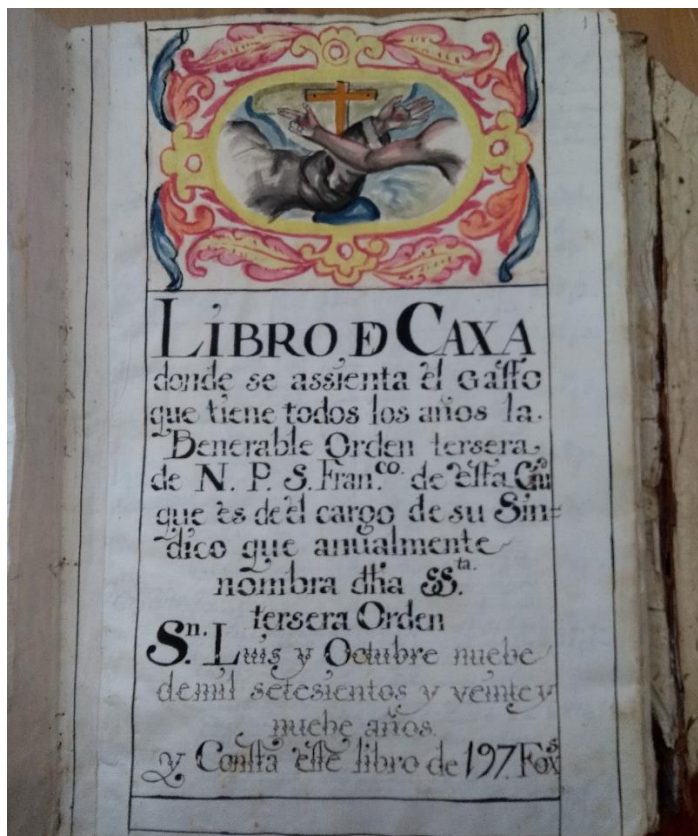 LIBRO DE CAXA
donde se assienta el Gasto
que tiene todos los años la
Benerable Orden tersera
de N. P. S. Fran.co de esta Ciu
que es de el cargo de su Sin=
dico que anualmente
nombra dha SS.ta
tersera Orden
Sn. Luis y Octubre nuebe
de mil setesientos y veinte y
nuebe años.
y Consta este libro de 197. Fox.s